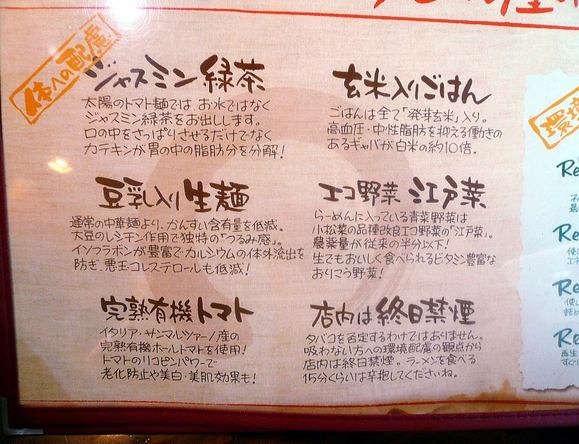 体への配慮
ジャスミン緑茶
太陽のトマト麺では、お水ではなく
ジャスミン緑茶をお出しします。
口の中をさっぱりさせるだけでなく
カテキンが胃の中の脂肪分を分解!
玄米入りごはん
ごはんは全て「発芽玄米」入り。
高血圧・中性脂肪を抑える働きの
あるギャバが白米の約10倍。
豆乳入り生麺
通常の中華麺より、かんすい含有量を低減。
大豆のレシチン作用で独特の「つるみ感」。
イソフラボンが豊富でカルシウムの体外流出を
防ぎ、悪玉コレステロールも低減!
エコ野菜 江戸菜
らーめんに入っている青菜野菜は
小松菜の品種改良エコ野菜の「江戸菜」。
農薬量が従来の半分以下!
生でもおいしく食べられるビタミン豊富な
おりこう野菜!
完熟有機トマト
イタリア・サンマルツァーノ産の
完熟有機ホールトマトを使用!
トマトのリコピンパワーで
老化防止や美白・美肌効果も!
店内は終日禁煙
タバコを否定するわけではありません。
吸わない方への環境配慮の観点から
店内は終日禁煙。ラーメンを食べる
15分くらいは辛抱してくださいね。
環境
Re
Re
Re
Re